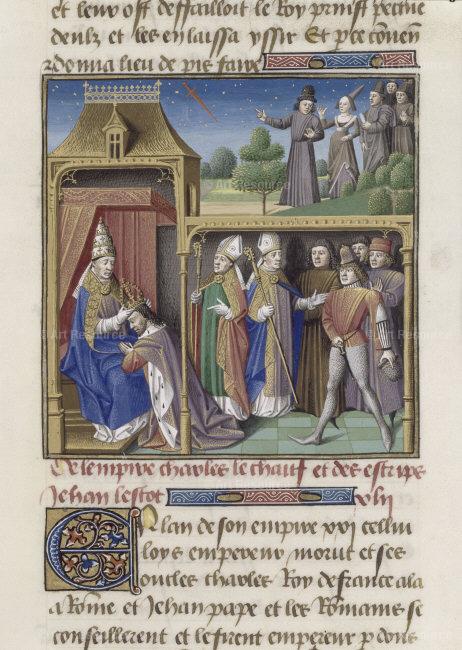 et leur ost deffailloit le Roy prinst pecune
deulz et les en laissa yssir Et par ce
donna lieu de paix faire
De lempire charles le chauf et des
Jehan lescot xlij
En lan de son empire xxj cellui
loys empereur morut et ses
oncles charles Roy de france ala
a Rome et Jehan pape et les Rommains se
conseillerent et le firent empereur par dons